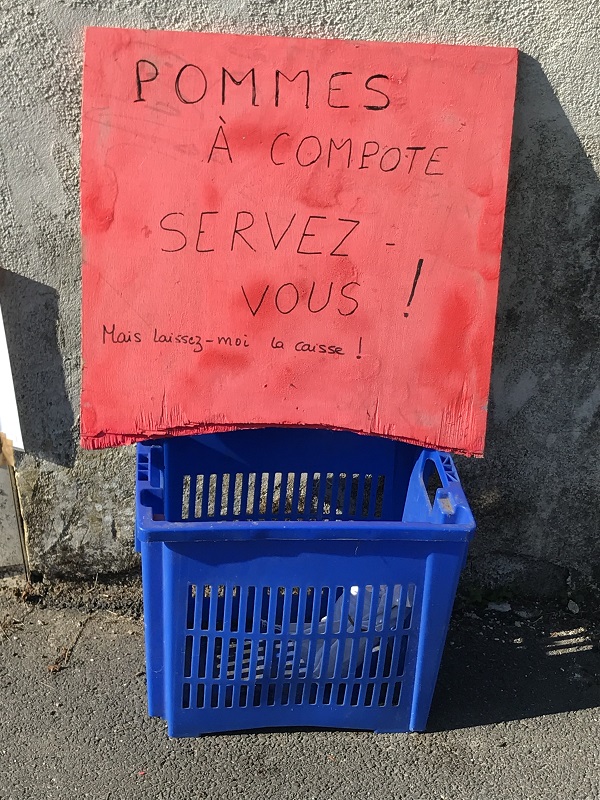 POMMES
À COMPOTE
SERVEZ-
VOUS !
Mais laissez-moi la caisse !